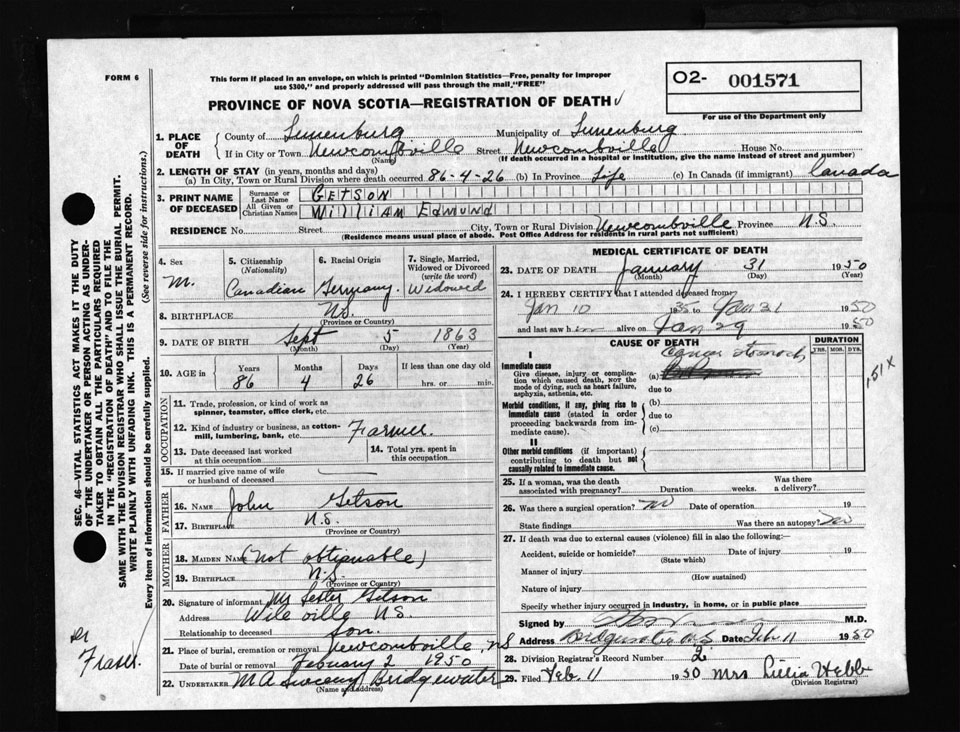 FORM 6
This form if placed in an envelope, on which is printed "Dominion Statistics—Free, penalty for improper
use $300," and properly addressed will pass through the mail, "FREE"
O2- 001571
For use of the Department only
PROVINCE OF NOVA SCOTIA—REGISTRATION OF DEATH
1. PLACE OF DEATH
County of Lunenburg Municipality of Lunenburg
If in City or Town Newcombville Street Newcombville House No.
(Name) (If death occurred in a hospital or institution, give the name instead of street and number)
2. LENGTH OF STAY (in years, months and days)
(a) In City, Town or Rural Division where death occurred 86-4-26 (b) In Province Life (c) In Canada (if immigrant) Canada
3. PRINT NAME OF DECEASED
Surname or Last Name GETSON
All Given or Christian Names William Edmund
RESIDENCE No. Street City, Town or Rural Division Newcombville Province N.S.
(Residence means usual place of abode. Post Office Address for residents in rural parts not sufficient)
4. Sex M.
5. Citizenship (Nationality) Canadian
6. Racial Origin Germany
7. Single, Married, Widowed or Divorced (write the word) Widowed
8. BIRTHPLACE N.S.
(Province or Country)
9. DATE OF BIRTH Sept 5 1863
(Month) (Day) (Year)
10. AGE in Years 86 Months 4 Days 26 If less than one day old hrs. or min.
OCCUPATION
11. Trade, profession, or kind of work as
spinner, teamster, office clerk, etc.
12. Kind of industry or business, as cotton-
mill, lumbering, bank, etc. Farmer.
13. Date deceased last worked
at this occupation
14. Total yrs. spent in
this occupation
15. If married give name of wife
or husband of deceased
FATHER
16. NAME John Getson
17. BIRTHPLACE N.S.
(Province or Country)
MOTHER
18. MAIDEN NAME (not obtianable)
19. BIRTHPLACE N.S.
(Province or Country)
20. Signature of informant Mr Lester Getson
Address Wileville N.S.
Relationship to deceased Son.
21. Place of burial, cremation or removal Newcombville, NS
Date of burial or removal February 2 1950
22. UNDERTAKER M A Bridgewater
(Name and address)
MEDICAL CERTIFICATE OF DEATH
23. DATE OF DEATH January 31 1950
(Month) (Day) (Year)
24. I HEREBY CERTIFY that I attended deceased from
Jan 10 19 to Jan 31 1950
and last saw him alive on Jan 29 1950
CAUSE OF DEATH
DURATION
YRS. MOS. DYS.
I
Immediate cause
Give disease, injury or complica-
tion which caused death, NOT the
mode of dying, such as heart failure,
asphyxia, asthenia, etc.
Cancer stomach
(a)
due to
Morbid conditions, if any, giving rise to
immediate cause (stated in order
proceeding backwards from im-
mediate cause).
(b)
due to
(c)
II
Other morbid conditions (if important)
contributing to death but not
causally related to immediate cause.
151X
25. If a woman, was the death
associated with pregnancy? Duration weeks. Was there
a delivery?
26. Was there a surgical operation? No Date of operation 19
State findings Was there an autopsy?
27. If death was due to external causes (violence) fill in also the following:—
Accident, suicide or homicide? Date of injury 19
(State which)
Manner of injury
(How sustained)
Nature of injury
Specify whether injury occurred in industry, in home, or in public place
Signed by M.D.
Address Date Feb 11 1950
28. Division Registrar's Record Number 2
29. Filed Feb. 11 1950 Mrs Lillia Webb
(Division Registrar)
SEC. 46—VITAL STATISTICS ACT MAKES IT THE DUTY
OF THE UNDERTAKER OR PERSON ACTING AS UNDER-
TAKER TO OBTAIN ALL THE PARTICULARS REQUIRED
IN THE "REGISTRATION OF DEATH" AND TO FILE THE
SAME WITH THE DIVISION REGISTRAR WHO SHALL ISSUE THE BURIAL PERMIT.
WRITE PLAINLY WITH UNFADING INK. THIS IS A PERMANENT RECORD.
Every item of information should be carefully supplied. (See reverse side for instructions.)
Dr
Fraser.